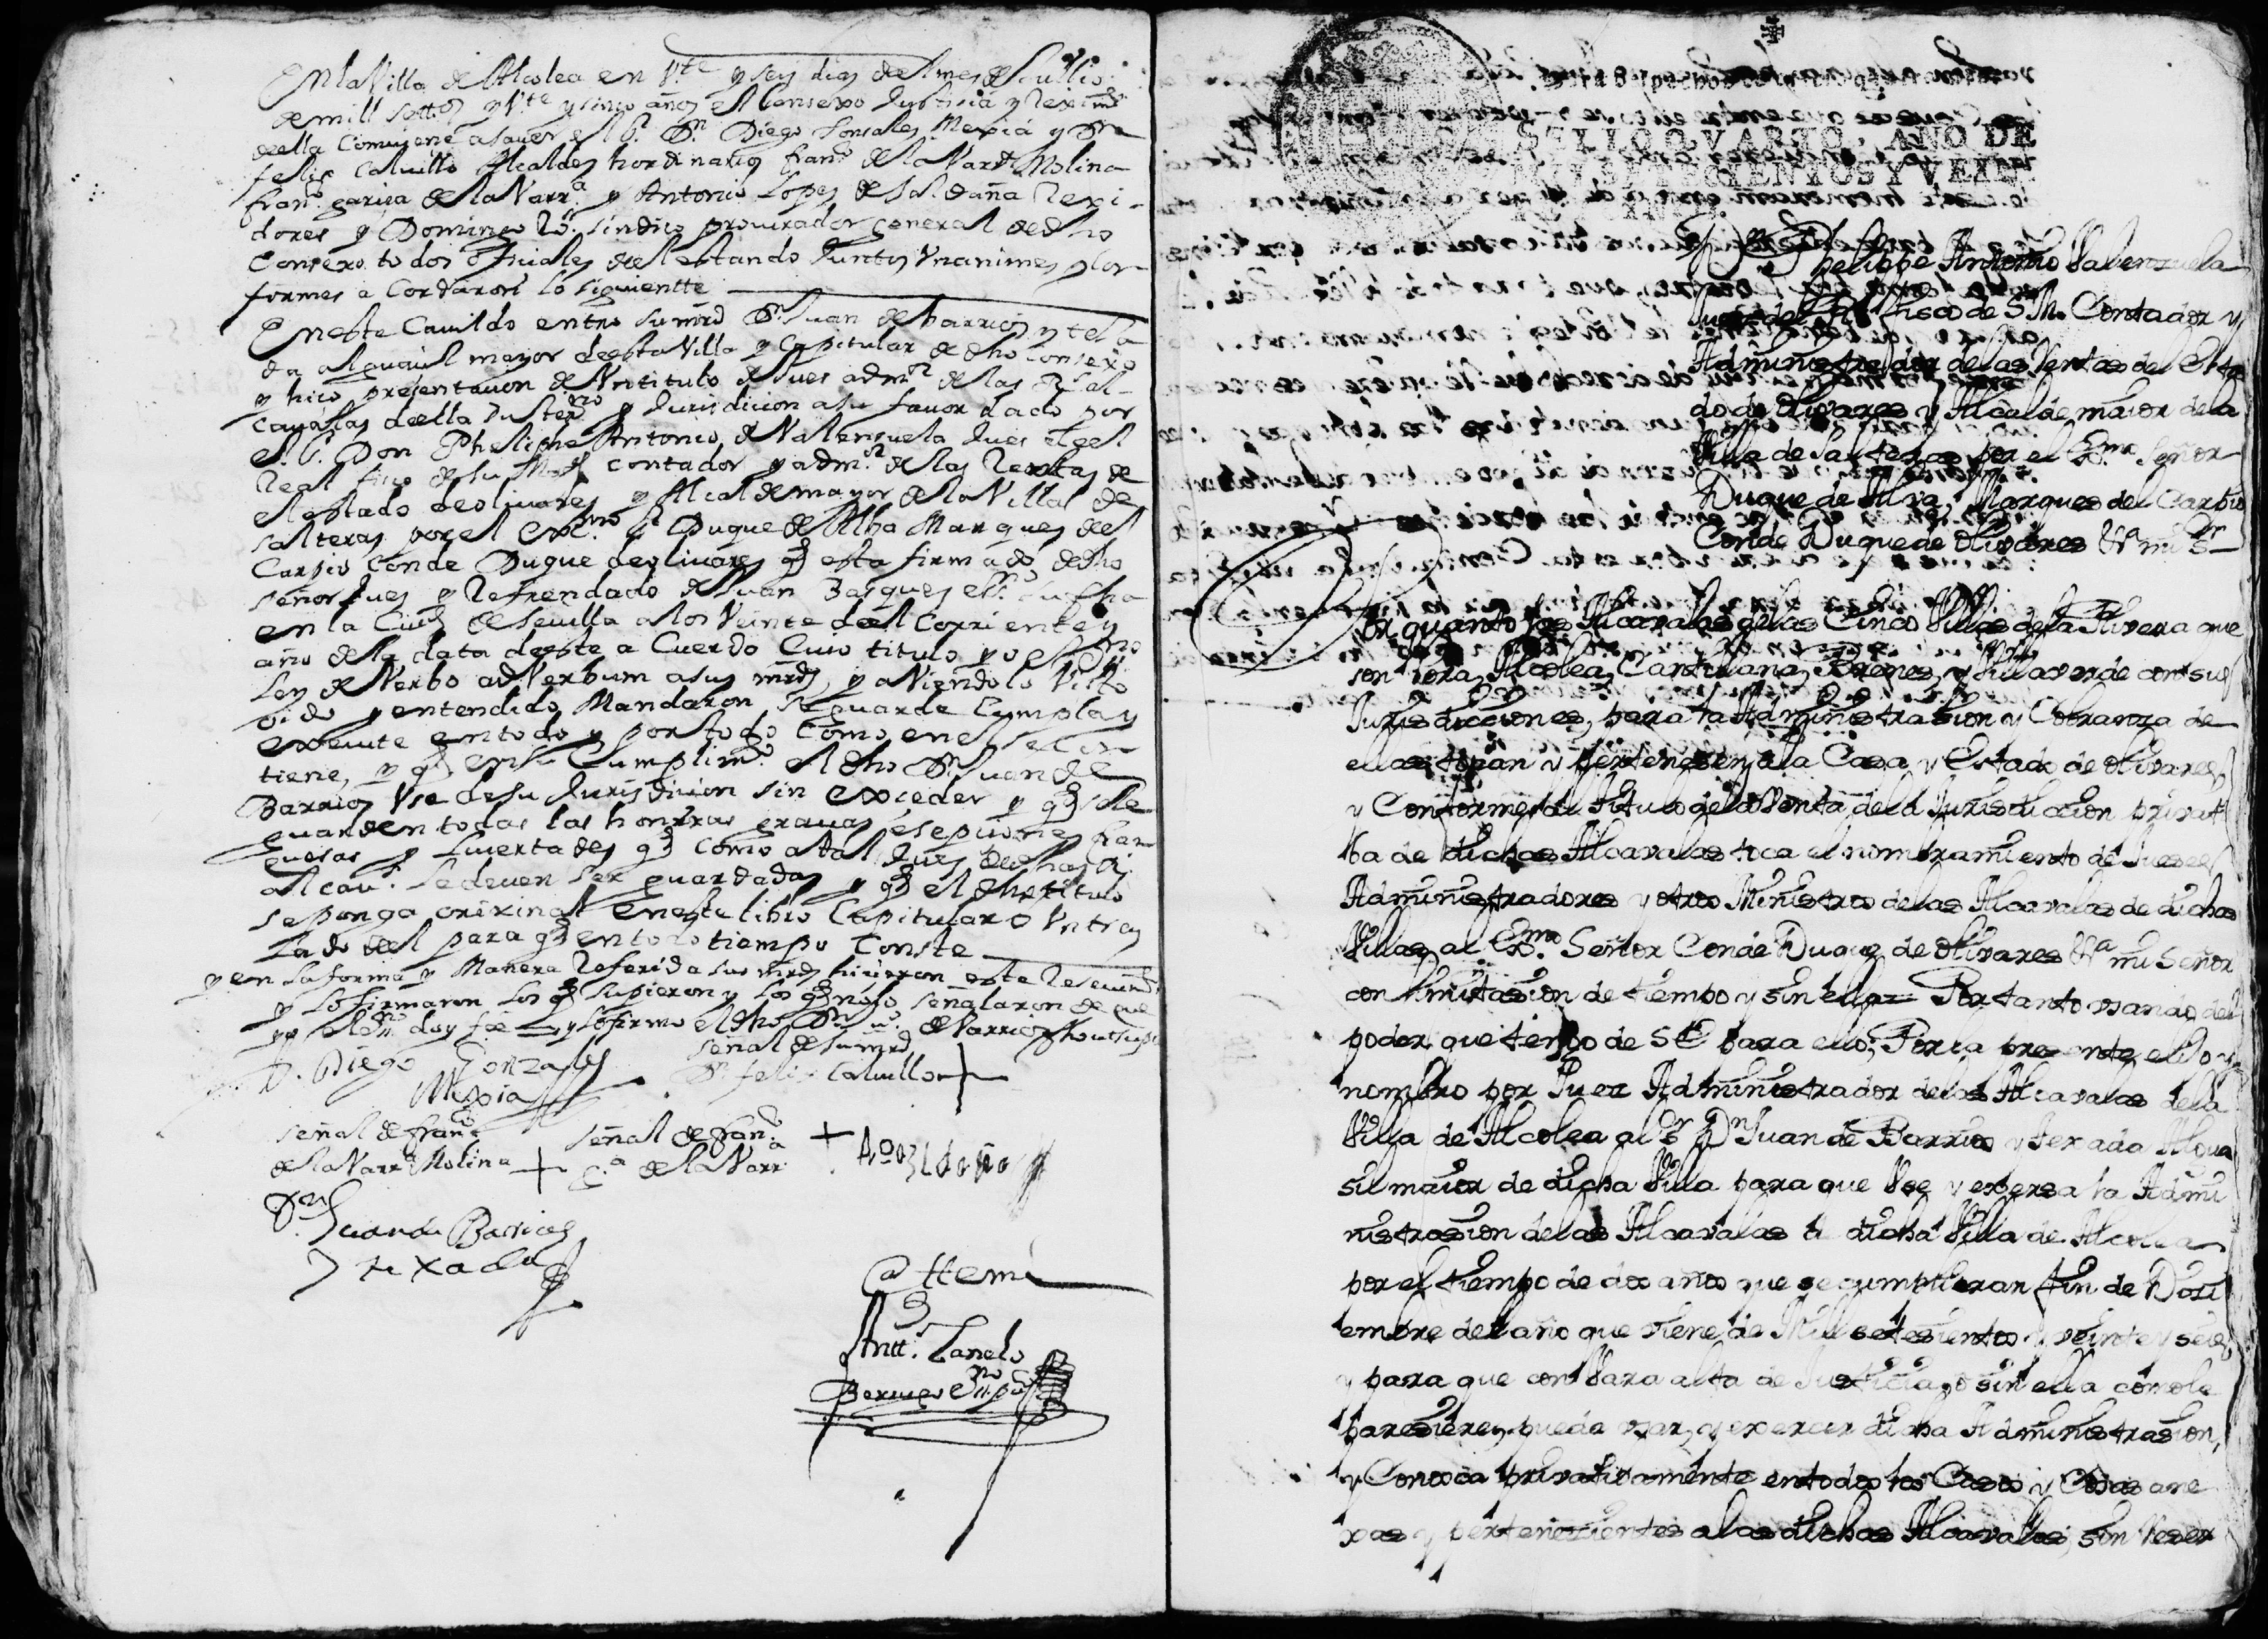 En la Villa de Alcolea en Vte y seis dias del mes de Jullio
de mill settos y Vte y sinco años el Consexo Justisia y reximto
della Combiene a saver el Sr. Dn Diego Gonsales Mexia y Dn
felix Calvillo Alcaldes hordinarios franco de la Varrª Molina
franco garsia de la Varra y Antonio Lopes de Saldaña rexi-
dores y Domingo sindico procurador general de dho
Consexo todos ofisiales del estando Juntos Unanimes y Con-
formes a Cordaron lo siguientte
En este Cavildo entro su mrd Dn Juan de barrios y texa
da alguasil mayor de esta Villa y Capitular de dho Consexo
y hiso presentasion de Un titulo de Jues admor de las Rs al-
cavalas della su termno y Jurisdision a su favor dado por
el Sr. Don Pheliphe Antonio de Valensuela Jues del
Real fisco de su Magd contador y admor de las Rentas de
el estado de olivares y Alcalde mayor de la Villa de
salteras por el Exmo Sr Duque de Alba Marques del
Carpio Conde Duque de olivares qe esta firmado de dho
señor Jues y Refrendado de Juan Basques essno su fha
en la Ciud de sevilla a los Veinte del Corriente y
año de la data de este a Cuerdo Cuio titulo yo el essno
Ley de Verbo ad Verbum a sus mrds y aViendolo Visto
oido y entendido Mandaron se guarde Cumpla y
execute en todo y por todo Como en el se Con-
tiene, y qe en su Cumplimto el dho Dn Juan de
Barrios Vse de su Jurisdision sin exceder y qe se le
guarden todas las honrras grasias esepsiones fran
quesas y livertades qe como a tal Jues de dhas Rs
alcavs. se deven ser guardadas y qe el dho titulo
se ponga orixinal en este libro Capitular o Vn tras
lado del para qe en todo tiempo Conste
y en la forma y Manera Referida sus mrds hisieron este resevimto
y lo firmaron los qe supieron y los qe no lo señalaron de que
yo el essno doy fee y lo firmo el dho Dn Juº de Varrios fho ut supª
D. Diego Gonzales
Mexia
señal de su mrd
Dn felix Calvillo +
señal de franco
de la Varrª Molina +
señal de franco
Gª de la Varrª +
Anº Saldaña
Dn Juan de Barrios
y texada
Ante mi
Antto. Canelo
Bermejo Essno pco
SELLO QVARTO, AÑO DE
SETECIENTOS Y VEIN-
Dn Phelippe Antonio Valenzuela
Juez del Rl. Fisco de S. M. Contador y
Administrador de las Rentas del Esta
do de Olivares y Alcalde maior de la
Villa de Salteras por el Exmo Señor
Duque de Alva, Marques del Carpio
Conde Duque de Olivares &ª mi Sr
Por quanto las Alcavalas de las Cinco Villas de la Rivera que
son Lora, Alcolea, Cantillana, Brenes, y Villaverde con sus
Jurisdicciones, para la Administrasion y Cobranza de
ellas tocan y pertenesen a la Casa y Estado de Olivares
y Conforme al titulo de la Venta de la Jurisdiccion privati
ba de dichas Alcavalas toca el nombramiento de Jueses
Administradores y otros Ministros de las Alcavalas de dichas
Villas, al Exmo Señor Conde Duque de Olivares &ª mi Señor
con limitasion de tiempo y sin ella = Por tanto vsando del
poder que tengo de S E para ello, Por la presente elijo y
nombro por Juez Administrador de las Alcavalas de la
Villa de Alcolea al Sr Dn Juan de Barrios y Texada Algua
sil maior de dicha Villa para que Vse y exersa la Admi
nistrasion de las Alcavalas de dicha Villa de Alcolea
por el tiempo de dos años que se cumpliran fin de Disi
embre del año que viene de Mill setesientos y veinte y seis
y para que con Vara alta de Justicia, o sin ella como le
paresiere, pueda vsar, y exercer dicha Administrasion,
y Conosca privativamente en todos los Casos y Cosas ane
xas y pertenesientes a las dichas Alcavalas, sin Reser